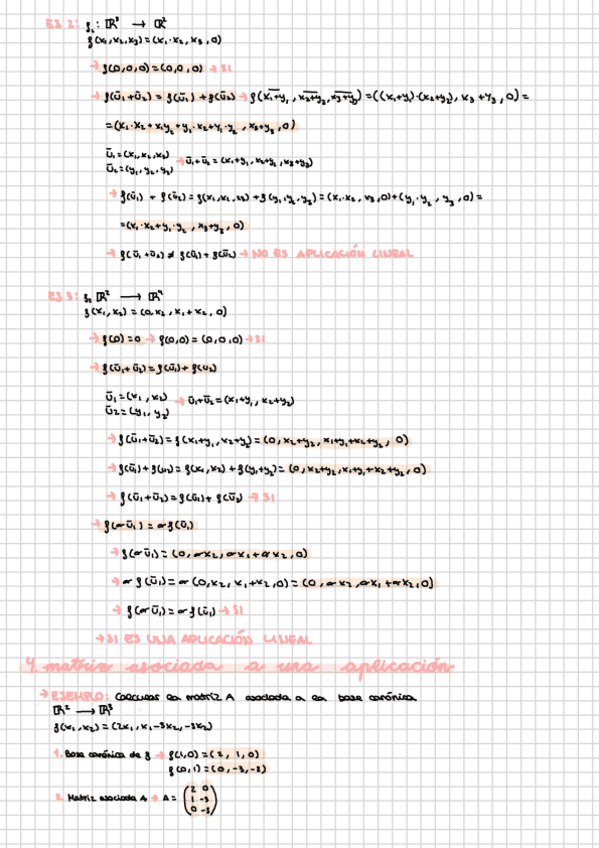 EJ 2: f: ℝ³ → ℝ²
f(x₁,x₂,x₃)=(x₁·x₂,x₃,0)
→ f(0,0,0)=(0,0,0) → SI
→ f(ū₁+ū₂) = f(ū₁)+f(ū₂) → f(x₁+y₁, x₂+y₂, x₃+y₃) =((x₁+y₁)·(x₂+y₂), x₃+y₃, 0) =
=(x₁·x₂+x₁y₂+y₁·x₂+y₁·y₂, x₃+y₃,0)
ū₁=(x₁,x₂,x₃)
ū₂=(y₁,y₂,y₃) → ū₁+ū₂=(x₁+y₁, x₂+y₂, x₃+y₃)
→ f(ū₁) + f(ū₂)=f(x₁,x₂,x₃)+f(y₁,y₂,y₃)=(x₁·x₂, x₃,0)+(y₁·y₂, y₃,0)=
=(x₁·x₂+y₁·y₂, x₃+y₃,0)
→ f(ū₁+ū₂) ≠ f(ū₁)+f(ū₂) → NO ES APLICACIÓN LINEAL
EJ 3: f: ℝ² → ℝ⁴
f(x₁,x₂)=(0,x₂,x₁+x₂,0)
→ f(0)=0 → f(0,0)=(0,0,0) → SI
→ f(ū₁+ū₂)=f(ū₁)+f(ū₂)
ū₁=(x₁,x₂)
ū₂=(y₁,y₂) → ū₁+ū₂=(x₁+y₁, x₂+y₂)
→ f(ū₁+ū₂)=f(x₁+y₁, x₂+y₂)=(0, x₂+y₂, x₁+y₁+x₂+y₂, 0)
→ f(ū₁)+f(ū₂)=f(x₁,x₂)+f(y₁+y₂)=(0,x₂+y₂,x₁+y₁+x₂+y₂,0)
→ f(ū₁+ū₂)=f(ū₁)+f(ū₂) → SI
→ f(αū₁)=αf(ū₁)
→ f(αū₁)=(0,αx₂,αx₁+αx₂,0)
→ αf(ū₁)=α(0,x₂,x₁+x₂,0)=(0,αx₂,αx₁+αx₂,0)
→ f(αū₁)=αf(ū₁) → SI
→ SI ES UNA APLICACIÓN LINEAL
4. matriz asociada a una aplicación
→ EJEMPLO: Calcular la matriz A asociada a la base canónica
ℝ² → ℝ³
f(x₁,x₂)=(2x₁,x₁-3x₂,-8x₂)
1. Base canónica de f → f(1,0)=(2,1,0)
f(0,1)=(0,-3,-8)
2. Matriz asociada A → A=(2 0
1 -3
0 -8)